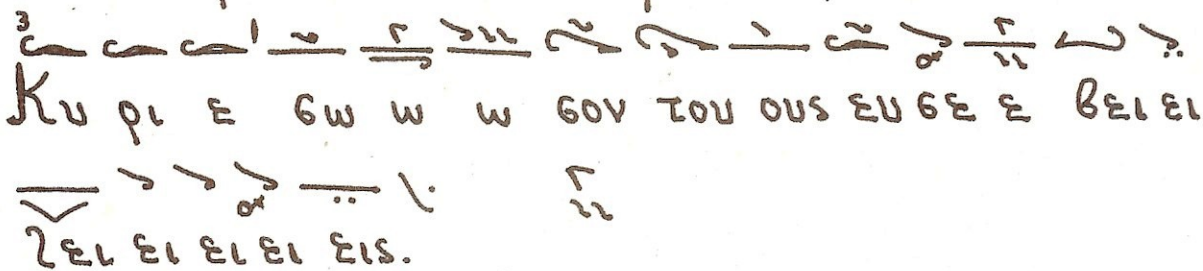 Κυ ρι ε σω ω ω σον τους ους ευ σε ε βει ει
λει ει ει ει εις.